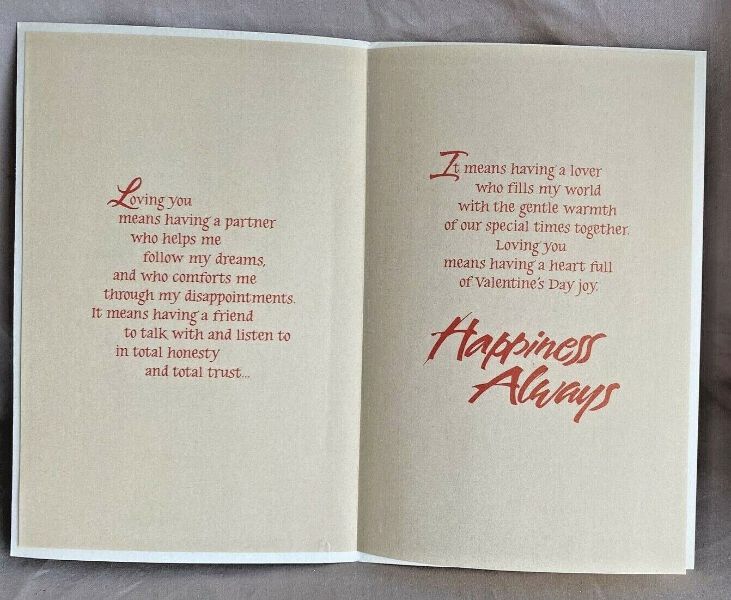 Loving you
means having a partner
who helps me
follow my dreams,
and who comforts me
through my disappointments.
It means having a friend
to talk with and listen to
in total honesty
and total trust...
It means having a lover
who fills my world
with the gentle warmth
of our special times together.
Loving you
means having a heart full
of Valentine's Day joy.
Happiness
Always